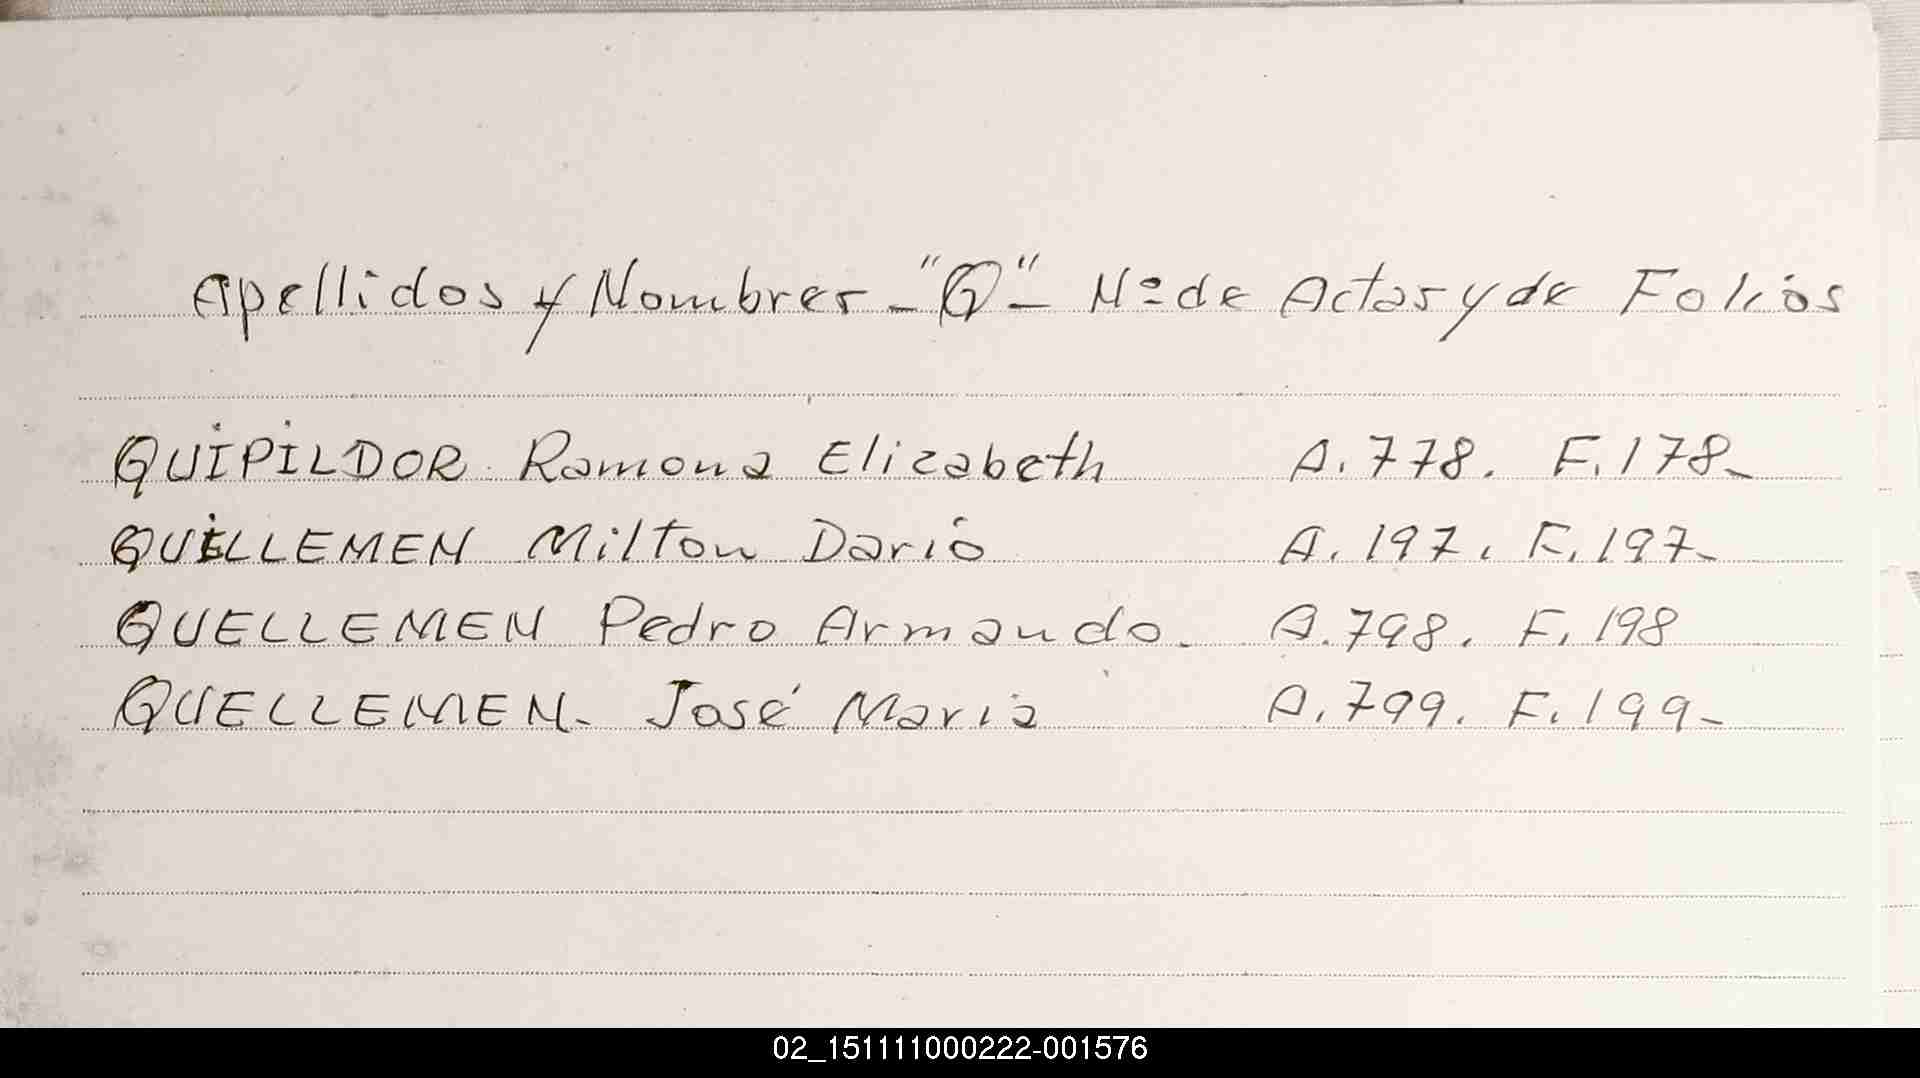 Apellidos y Nombres - "Q" - Nº de Actas y de Folios
QUIPILDOR Ramona Elizabeth A. 778. F. 178-
QUILLEMEN Milton Dario A. 197. F. 197-
QUELLEMEN Pedro Armando. A. 798. F. 198
QUELLEMEN. José Maria A. 799. F. 199-
02_151111000222-001576